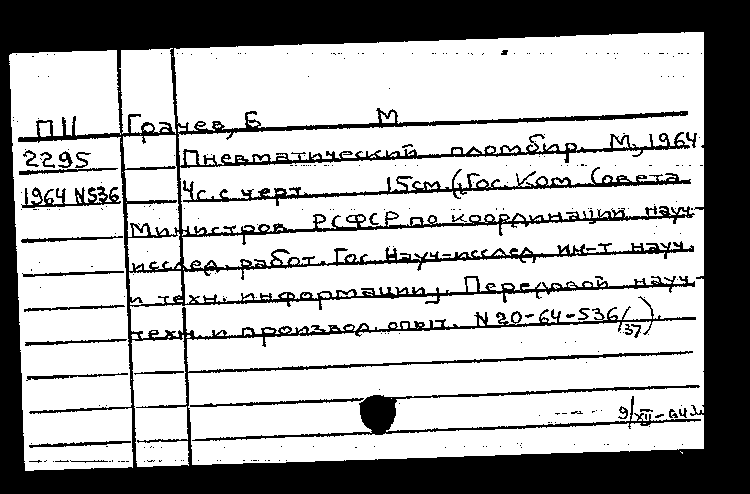 П11 Грачев, Б М
2295 Пневматический пломбир. М., 1964.
1964 N536 4с. с черт. 15см. (Гос. Ком. Совета
Министров РСФСР по координации науч-
исслед. работ. Гос. Науч-исслед. ин-т науч.
и техн. информации). Передовой науч.-
техн. и производ. опыт. N 20-64-536/37).
9/XII-64